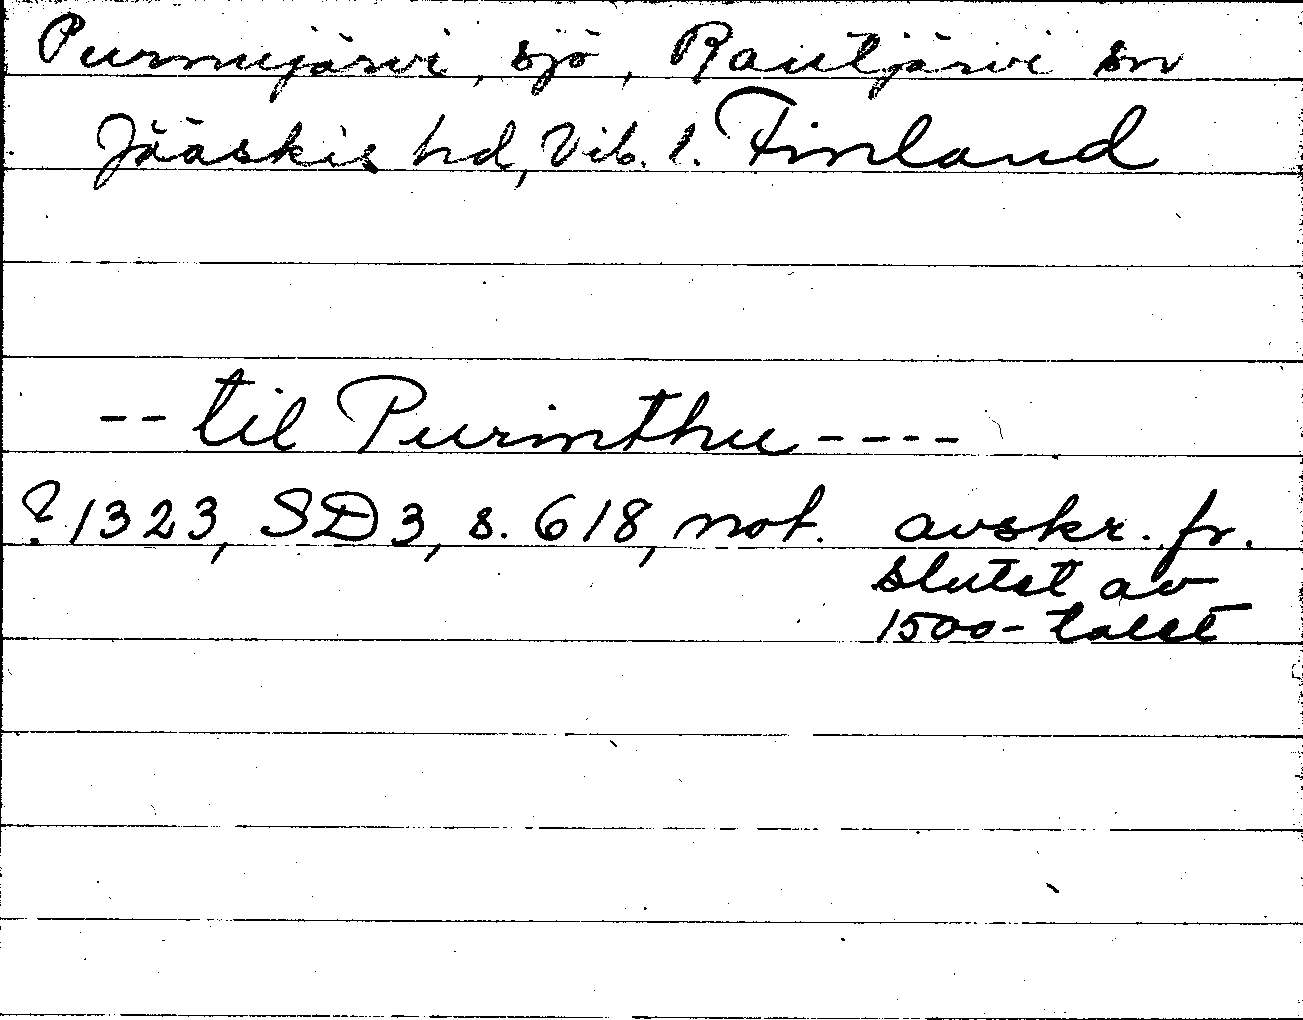 Purmujärvi, sjö, Rautjärvi sn
Jääskis hd, Vib. l. Finland
-- til Purmthu ----
? 1323, SD 3, s. 618, not. avskr. fr.
slutet av
1500-talet